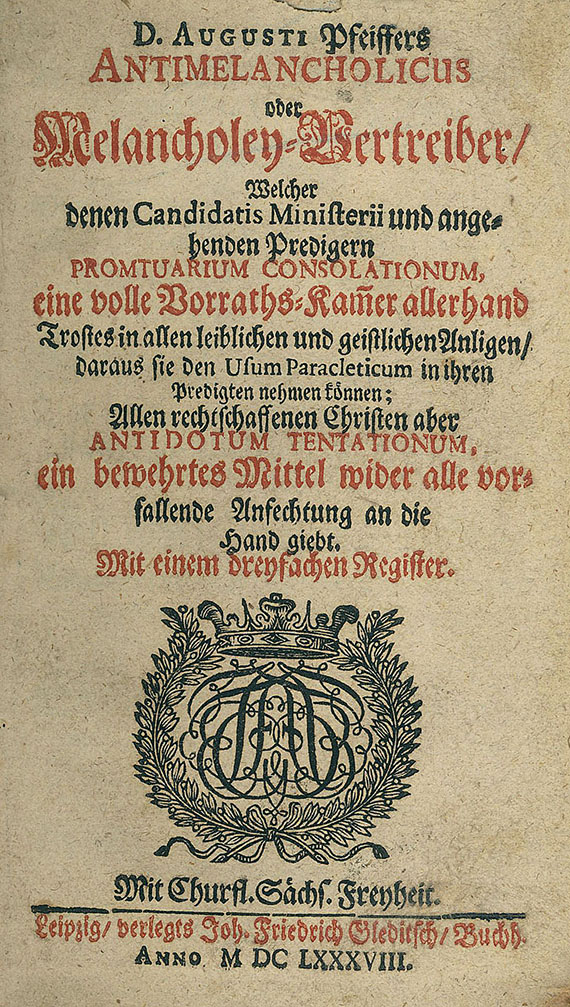 D. AUGUSTI Pfeiffers
ANTIMELANCHOLICUS
oder
Melancholey-Vertreiber/
Welcher
denen Candidatis Ministerii und ange-
henden Predigern
PROMTUARIUM CONSOLATIONUM,
eine volle Vorraths-Kam̅er allerhand
Trostes in allen leiblichen und geistlichen Anligen/
daraus sie den Usum Paracleticum in ihren
Predigten nehmen können;
Allen rechtschaffenen Christen aber
ANTIDOTUM TENTATIONUM,
ein bewehrtes Mittel wider alle vor-
fallende Anfechtung an die
Hand giebt.
Mit einem dreyfachen Register.
Mit Churfl. Sächs. Freyheit.
Leipzig/ verlegts Joh. Friedrich Gleditsch/ Buchh.
ANNO M DC LXXXVIII.